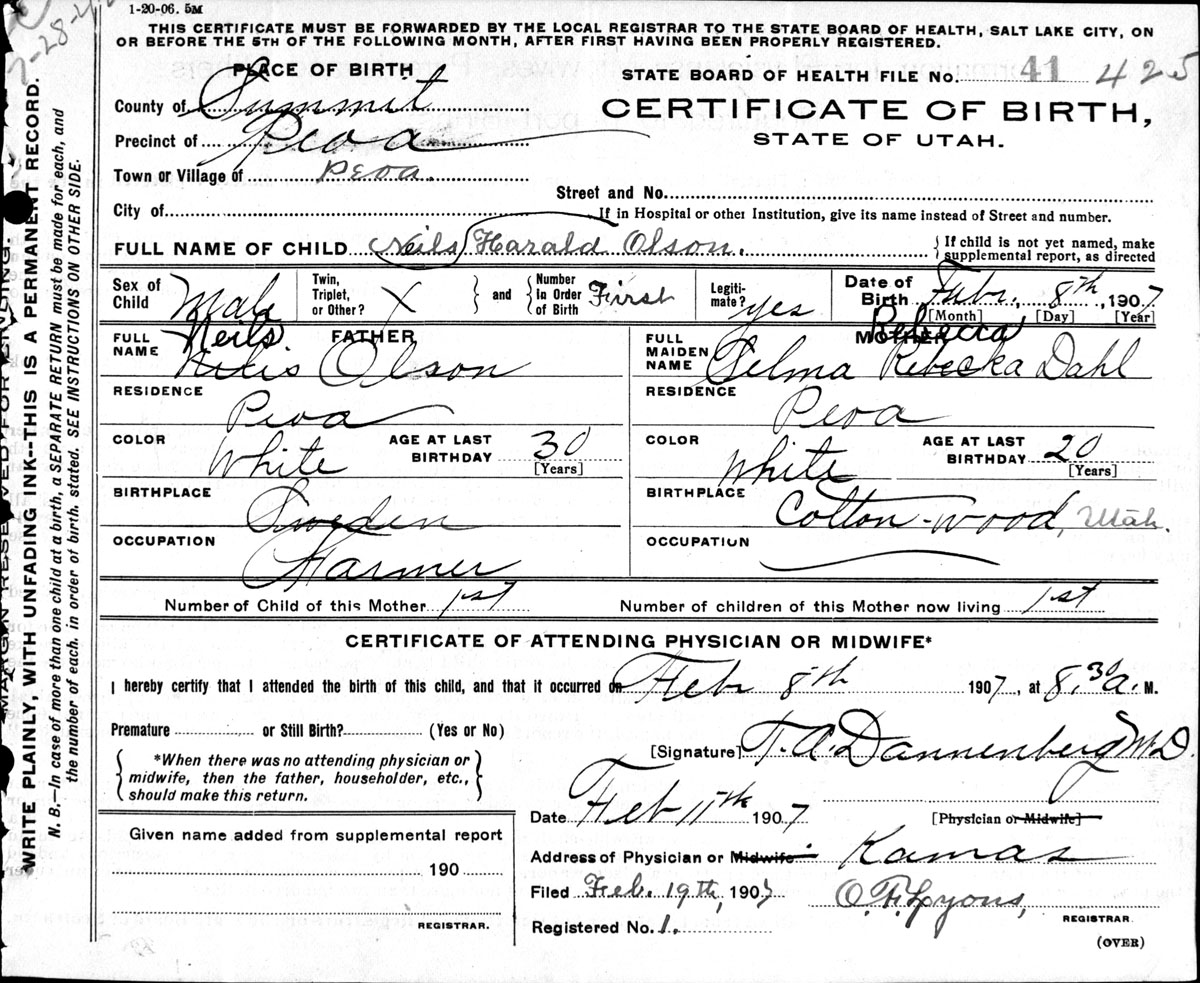 1-20-06. 5M
THIS CERTIFICATE MUST BE FORWARDED BY THE LOCAL REGISTRAR TO THE STATE BOARD OF HEALTH, SALT LAKE CITY, ON
OR BEFORE THE 5TH OF THE FOLLOWING MONTH, AFTER FIRST HAVING BEEN PROPERLY REGISTERED.
PLACE OF BIRTH
STATE BOARD OF HEALTH FILE No. 41 425
County of Summit
CERTIFICATE OF BIRTH,
Precinct of Peoa
STATE OF UTAH.
Town or Village of Peoa.
Street and No.
City of
If in Hospital or other Institution, give its name instead of Street and number.
FULL NAME OF CHILD (Neils) Harald Olson.
{ If child is not yet named, make
supplemental report, as directed
Sex of Child Male
Twin, Triplet, or Other? X } and { Number In Order of Birth First
Legitimate? yes
Date of Birth Febr. 8th, 1907
[Month] [Day] [Year]
FATHER
FULL NAME Neils. Olson
MOTHER
FULL MAIDEN NAME Selma Rebecca Rebecka Dahl
RESIDENCE Peoa
RESIDENCE Peoa
COLOR White AGE AT LAST BIRTHDAY 30 [Years]
COLOR White AGE AT LAST BIRTHDAY 20 [Years]
BIRTHPLACE Sweden
BIRTHPLACE Cotton-wood, Utah.
OCCUPATION Farmer
OCCUPATION
Number of Child of this Mother 1st Number of children of this Mother now living 1st
CERTIFICATE OF ATTENDING PHYSICIAN OR MIDWIFE*
I hereby certify that I attended the birth of this child, and that it occurred on Feb 8th 1907, at 8.30 a. M.
Premature or Still Birth? (Yes or No)
[Signature] T. A. Dannenberg M.D.
{ *When there was no attending physician or
midwife, then the father, householder, etc.,
should make this return. }
Date Feb 11th 1907 [Physician or Midwife]
Given name added from supplemental report
190
REGISTRAR.
Address of Physician or Midwife Kamas
Filed Feb. 19th, 1907 O. F. Lyons,
REGISTRAR
Registered No. 1.
(OVER)
WRITE PLAINLY, WITH UNFADING INK--THIS IS A PERMANENT RECORD.
N. B.—In case of more than one child at a birth, a SEPARATE RETURN must be made for each, and
the number of each, in order of birth, stated. SEE INSTRUCTIONS ON OTHER SIDE.